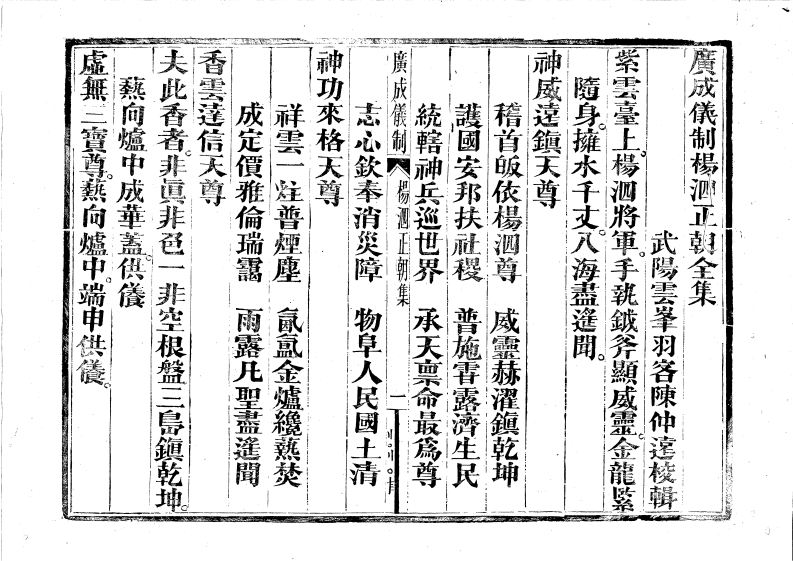 廣成儀制楊泗正朝全集
武陽雲峯羽客陳仲遠校輯
紫雲臺上楊泗將軍。手執鉞斧顯威靈。金龍緊
隨身。擁水千丈。八海盡遙聞。
神威遠鎭天尊
稽首皈依楊泗尊　威靈赫濯鎭乾坤
護國安邦扶社稷　普施霅露濟生民
統轄神兵巡世界　承天稟命最爲尊
廣成儀制　楊泗正朝集　一
志心欽奉消災障　物阜人民國土清
神功來格天尊
祥雲一炷普煙塵　氤氳金爐纔爇焚
成定價雅倫瑞靄　雨露凡聖盡遙聞
香雲達信天尊
夫此香者。非眞非色一非空根盤三島鎭乾坤。
爇向爐中成華蓋。供儀
虛無三寶尊。爇向爐中。端申供儀。